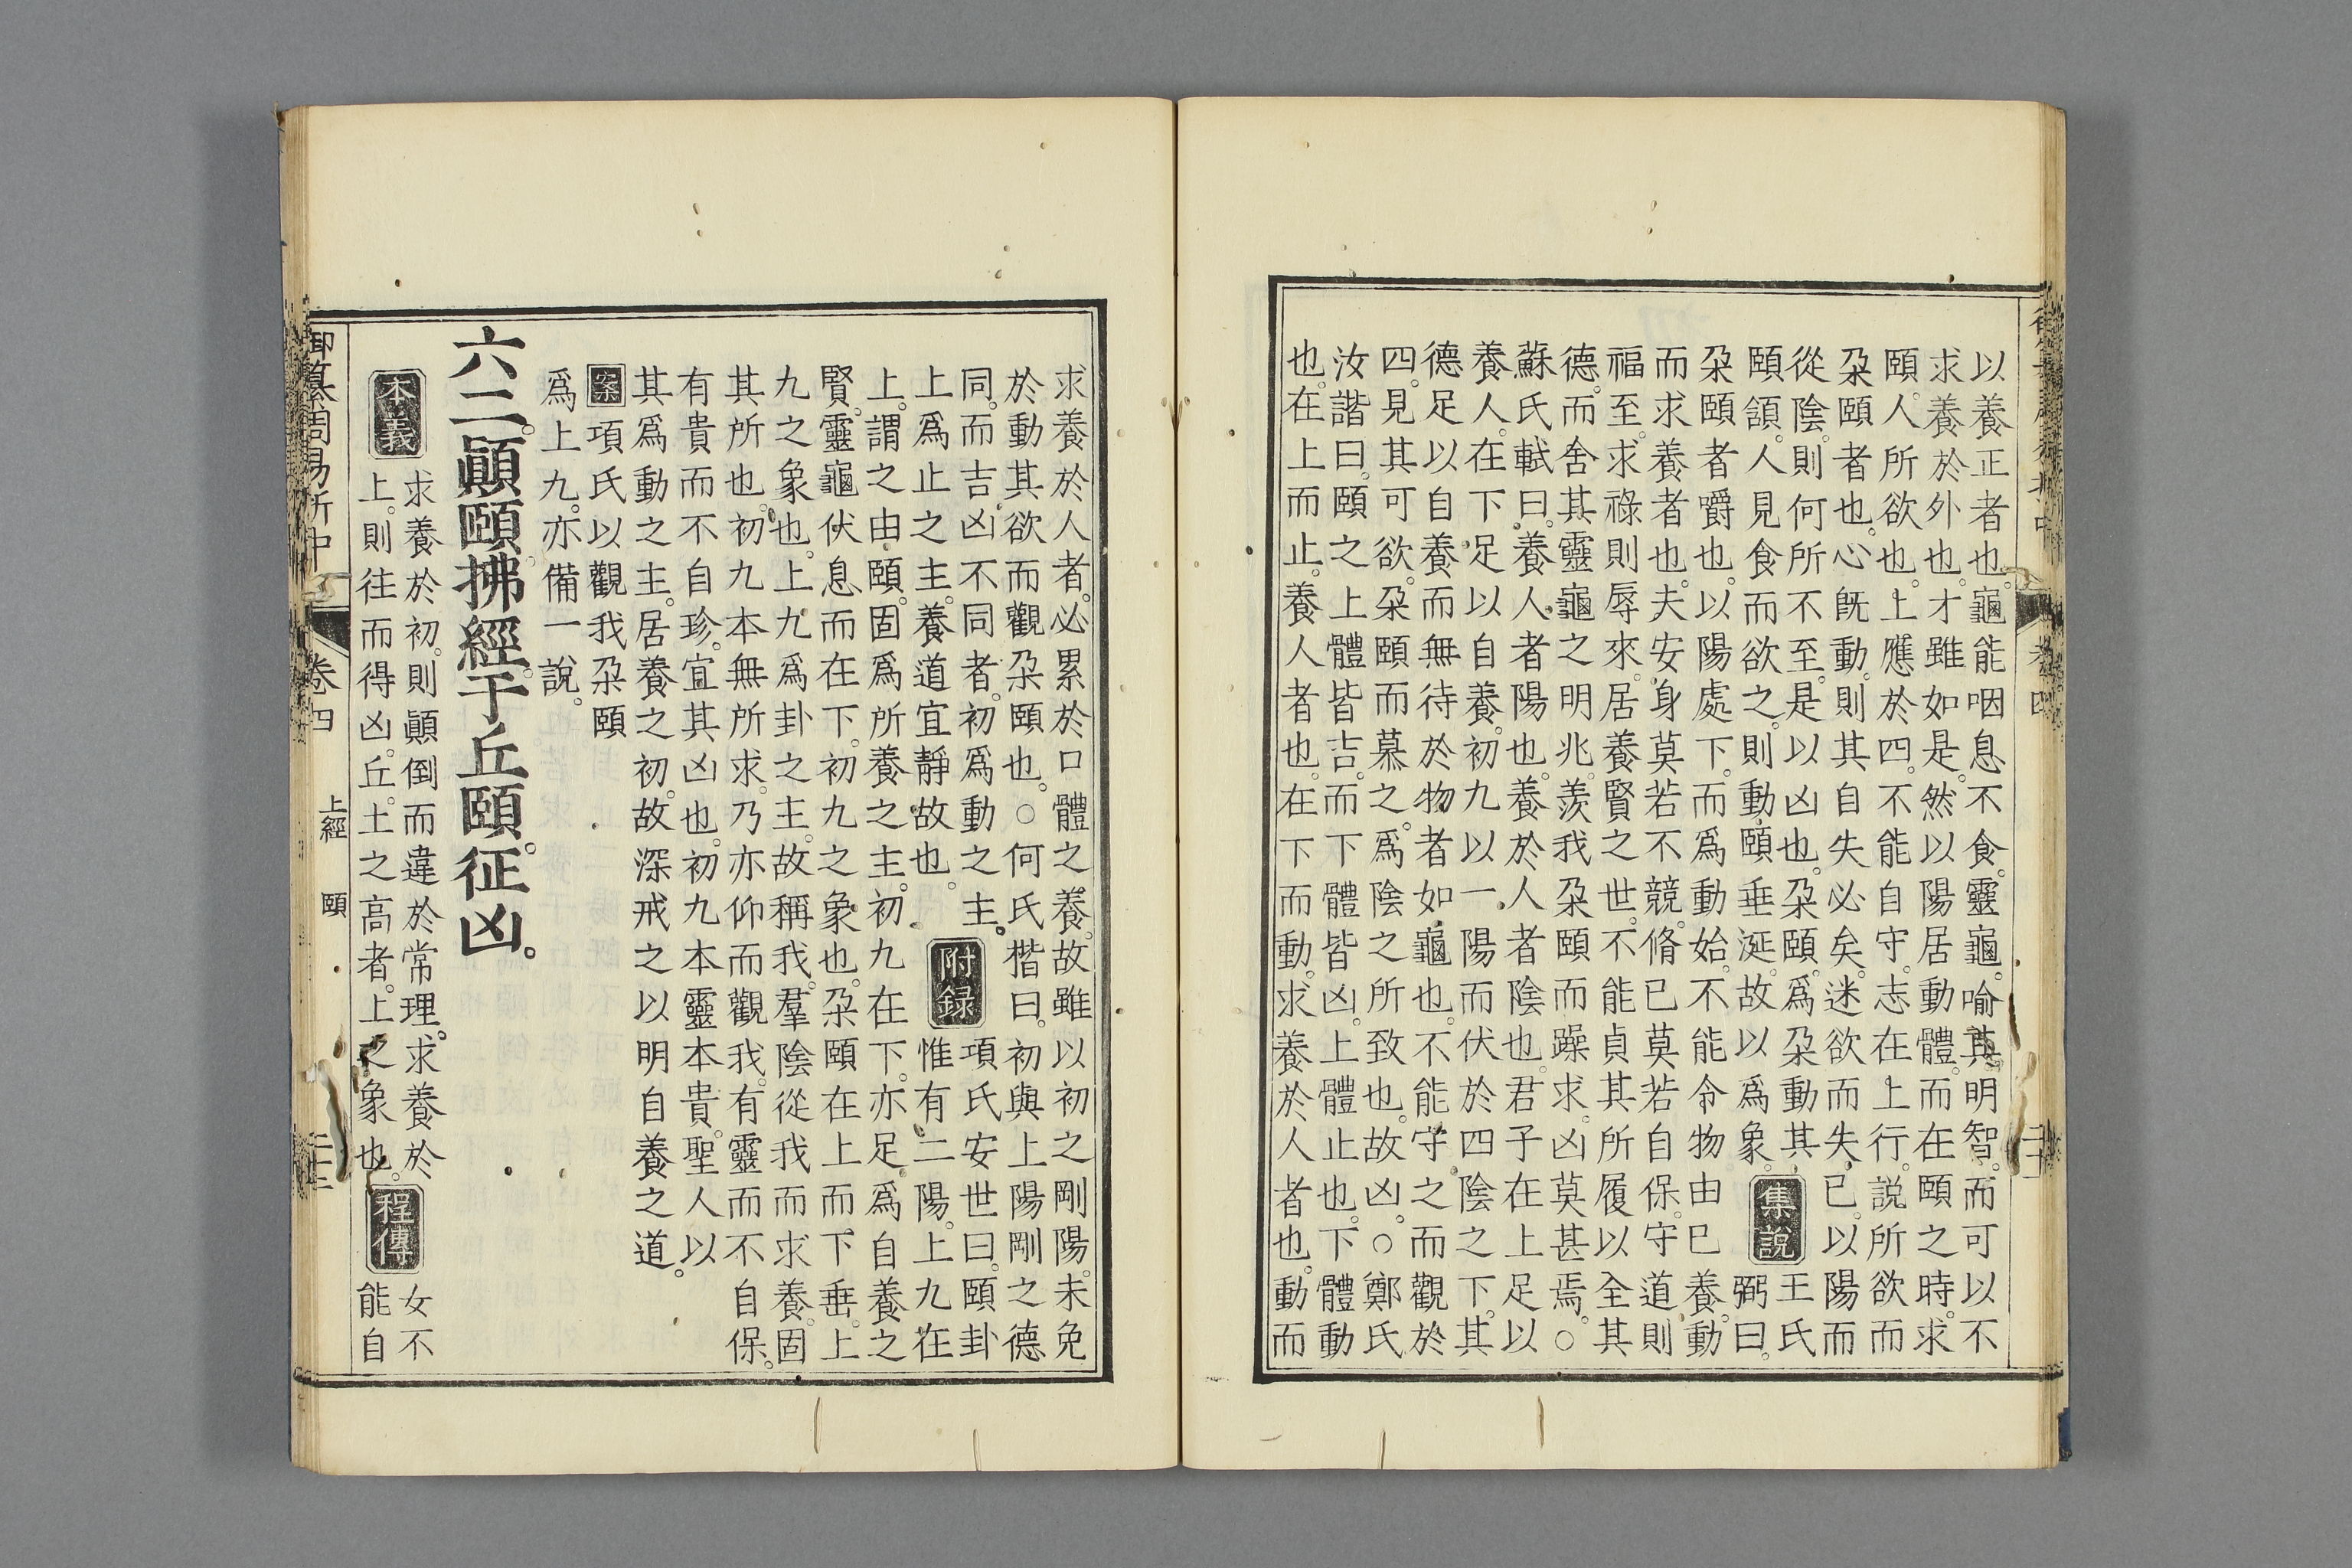 以養正者也。龜能咽息不食。靈龜。喻其明智。而可以不
求養於外也。才雖如是。然以陽居動體。而在頤之時。求
頤。人所欲也。上應於四。不能自守。志在上行。說所欲而
朶頤者也。心旣動。則其自失必矣。迷欲而失已。以陽而
從陰。則何所不至。是以凶也。朶頤。爲朶動其 集說 王氏
頤頷。人見食而欲之。則動頤垂涎。故以爲象。 弼曰。
朶頤者。嚼也。以陽處下。而爲動始。不能令物由已養。動
而求養者也。夫安身莫若不競。脩已莫若自保。守道則
福至。求祿則辱來。居養賢之世。不能貞其所履以全其
德。而舍其靈龜之明兆。羨我朶頤而躁求。凶莫甚焉。○
蘇氏軾曰。養人者陽也。養於人者陰也。君子在上足以
養人。在下足以自養。初九以一陽而伏於四陰之下。其
德足以自養。而無待於物者如龜也。不能守之而觀於
四。見其可欲。朶頤而慕之。爲陰之所致也。故凶。○鄭氏
汝諧曰。頤之上體皆吉。而下體皆凶。上體止也。下體動
也。在上而止。養人者也。在下而動。求養於人者也。動而
求養於人者。必累於口體之養。故雖以初之剛陽。未免
於動其欲而觀朶頤也。○何氏楷曰。初與上陽剛之德
同。而吉凶不同者。初爲動之主。 附錄 項氏安世曰。頤卦
上爲止之主。養道宜靜故也。 惟有二陽。上九在
上。謂之由頤。固爲所養之主。初九在下。亦足爲自養之
賢。靈龜伏息而在下。初九之象也。朶頤在上而下垂。上
九之象也。上九爲卦之主。故稱我。羣陰從我而求養。固
其所也。初九本無所求。乃亦仰而觀我。有靈而不自保。
有貴而不自珍。宜其凶也。初九本靈本貴。聖人以
其爲動之主。居養之初。故深戒之以明自養之道。
案 項氏以觀我朶頤
爲上九。亦備一說。
六二。顚頤。拂經。于丘頤。征凶。
本義 求養於初。則顚倒而違於常理。求養於 程傳 女不
上。則往而得凶。丘。土之高者。上之象也。 能自
御纂周易折中 卷四 上經 頤